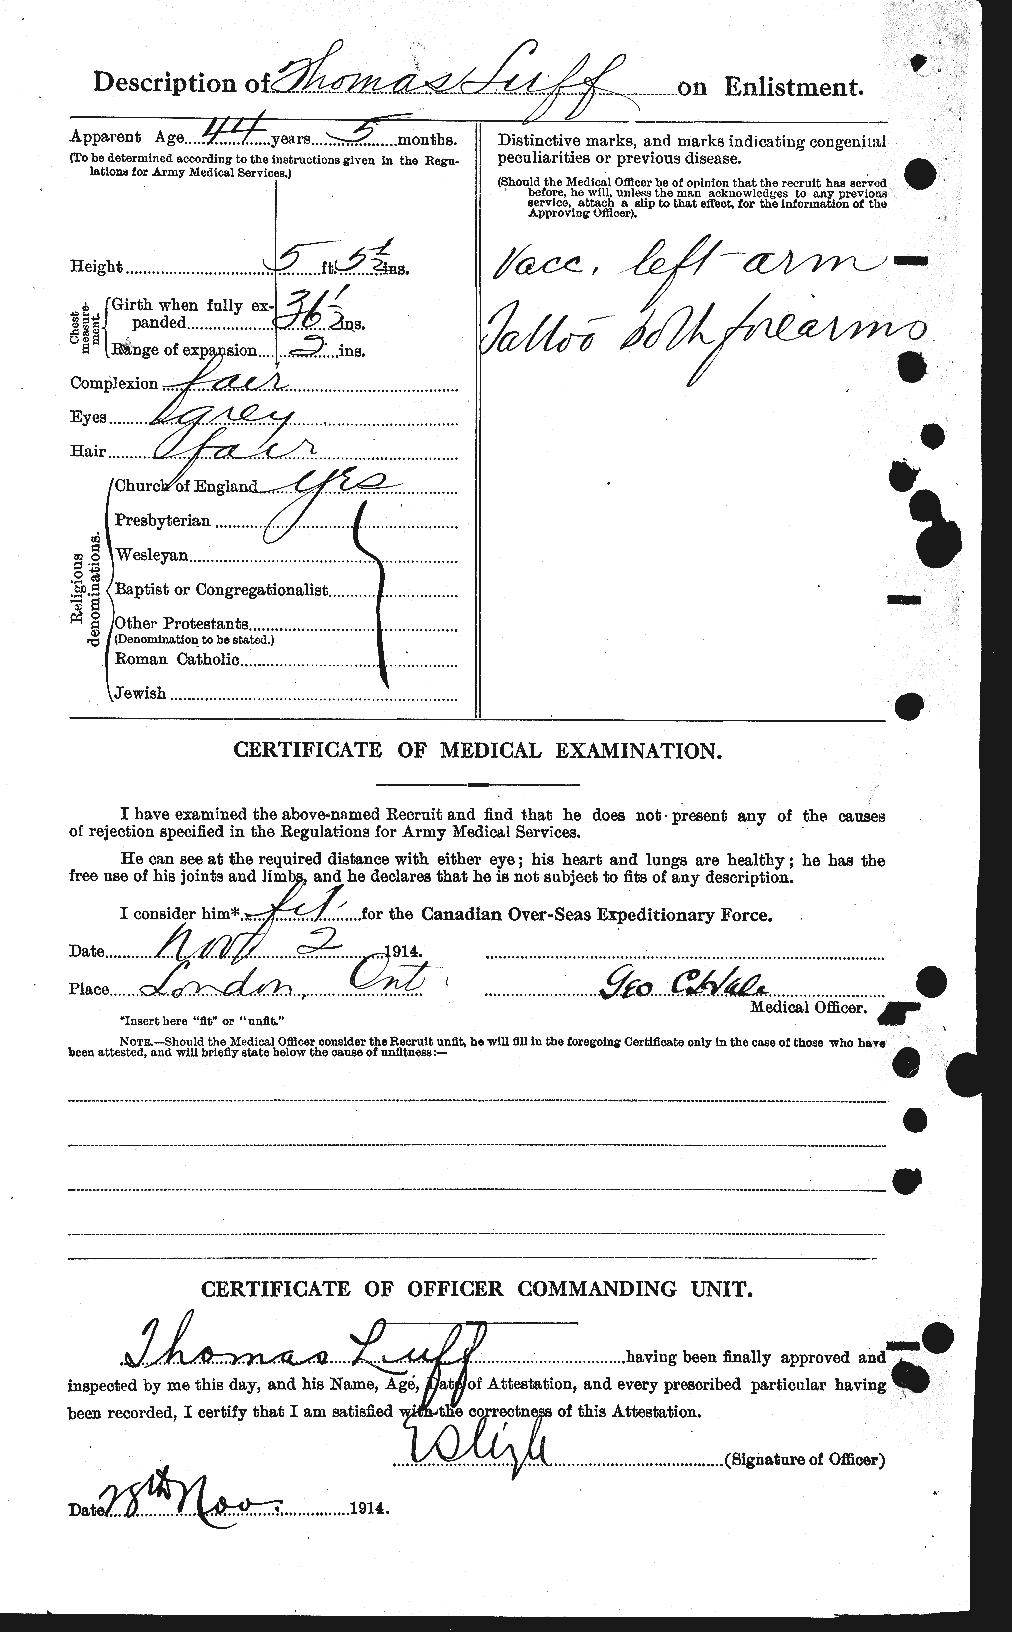 Description of Thomas Luff on Enlistment.
Apparent Age 44 years 5 months.
(To be determined according to the instructions given in the Regu-
lations for Army Medical Services.)
Height 5 ft. 5½ ins.
Chest measure-
ment.
Girth when fully ex-
panded 36½ ins.
Range of expansion 2 ins.
Complexion fair
Eyes grey
Hair fair
Religious
denominations.
Church of England yes
Presbyterian
Wesleyan
Baptist or Congregationalist
Other Protestants
(Denomination to be stated.)
Roman Catholic
Jewish
Distinctive marks, and marks indicating congenital
peculiarities or previous disease.
(Should the Medical Officer be of opinion that the recruit has served
before, he will, unless the man acknowledges to any previous
service, attach a slip to that effect, for the information of the
Approving Officer).
Vacc. left arm
Tattoo both forearms
CERTIFICATE OF MEDICAL EXAMINATION.
I have examined the above-named Recruit and find that he does not present any of the causes
of rejection specified in the Regulations for Army Medical Services.
He can see at the required distance with either eye; his heart and lungs are healthy; he has the
free use of his joints and limbs, and he declares that he is not subject to fits of any description.
I consider him* fit for the Canadian Over-Seas Expeditionary Force.
Date Nov 2 1914.
Place London, Ont
Geo C. Hale
Medical Officer.
*Insert here "fit" or "unfit."
NOTE.—Should the Medical Officer consider the Recruit unfit, he will fill in the foregoing Certificate only in the case of those who have
been attested, and will briefly state below the cause of unfitness:—
CERTIFICATE OF OFFICER COMMANDING UNIT.
Thomas Luff having been finally approved and
inspected by me this day, and his Name, Age, Date of Attestation, and every prescribed particular having
been recorded, I certify that I am satisfied with the correctness of this Attestation.
(Signature of Officer)
Date 28th Nov. 1914.